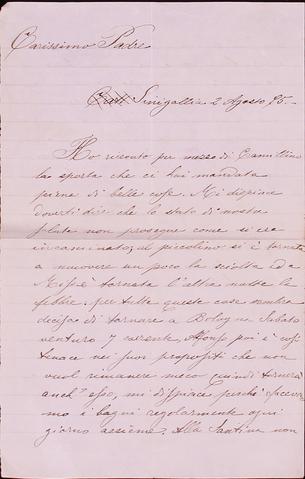 Carissimo Padre
Sinigallia 2 Agosto 95.
Ho ricevuto per mezzo di Camillino
la sporta che ci hai mandata
piena di belle cose. Mi dispiace
doverti dire che lo stato di nostra
salute non prosegue come si era
incamminato, al piccolino si è tornata
a muovere un poco la sciolta ed a
è tornata l'altra notte la
febbre, per tutte queste cose sembra
decisa di tornare a Bologna Sabato
venturo 7 corrente. Alfonso poi è così
tenace nei suoi propositi che non
vuol rimanere meco quindi tornerà
anch'esso, mi dispiace perchè faceva
mo i bagni regolarmente ogni
giorno assieme. Alla Santina non